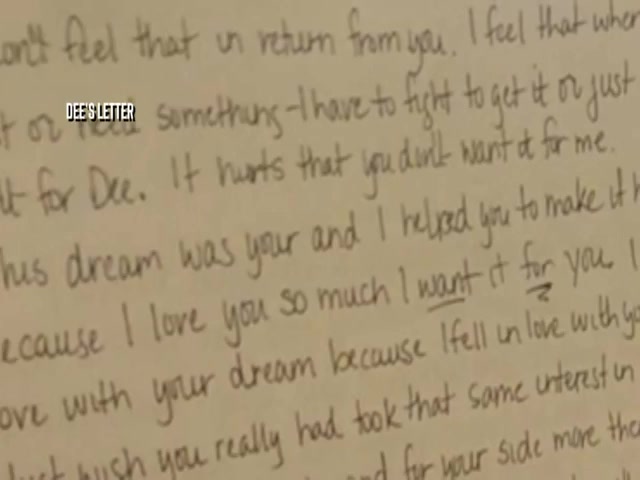 on't feel that in return from you. I feel that when
DEE'S LETTER
or need something - I have to fight to get it or just
it for Dee. It hurts that you don't want it for me.
his dream was your and I helped you to make it h
ecause I love you so much I want it for you. I
ove with your dream because I fell in love with yo
wish you really had took that same interest in
for your side more tha